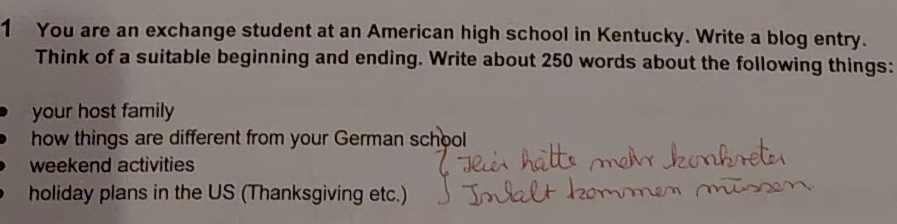 1 You are an exchange student at an American high school in Kentucky. Write a blog entry.
Think of a suitable beginning and ending. Write about 250 words about the following things:
• your host family
• how things are different from your German school
• weekend activities
• holiday plans in the US (Thanksgiving etc.)
Hier hätte mehr konkreter
Inhalt kommen müssen.